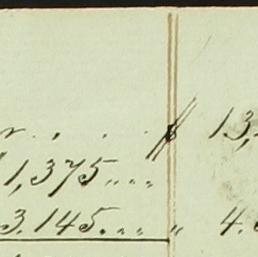 $ 13,
1,375....
3.145.... " 4.